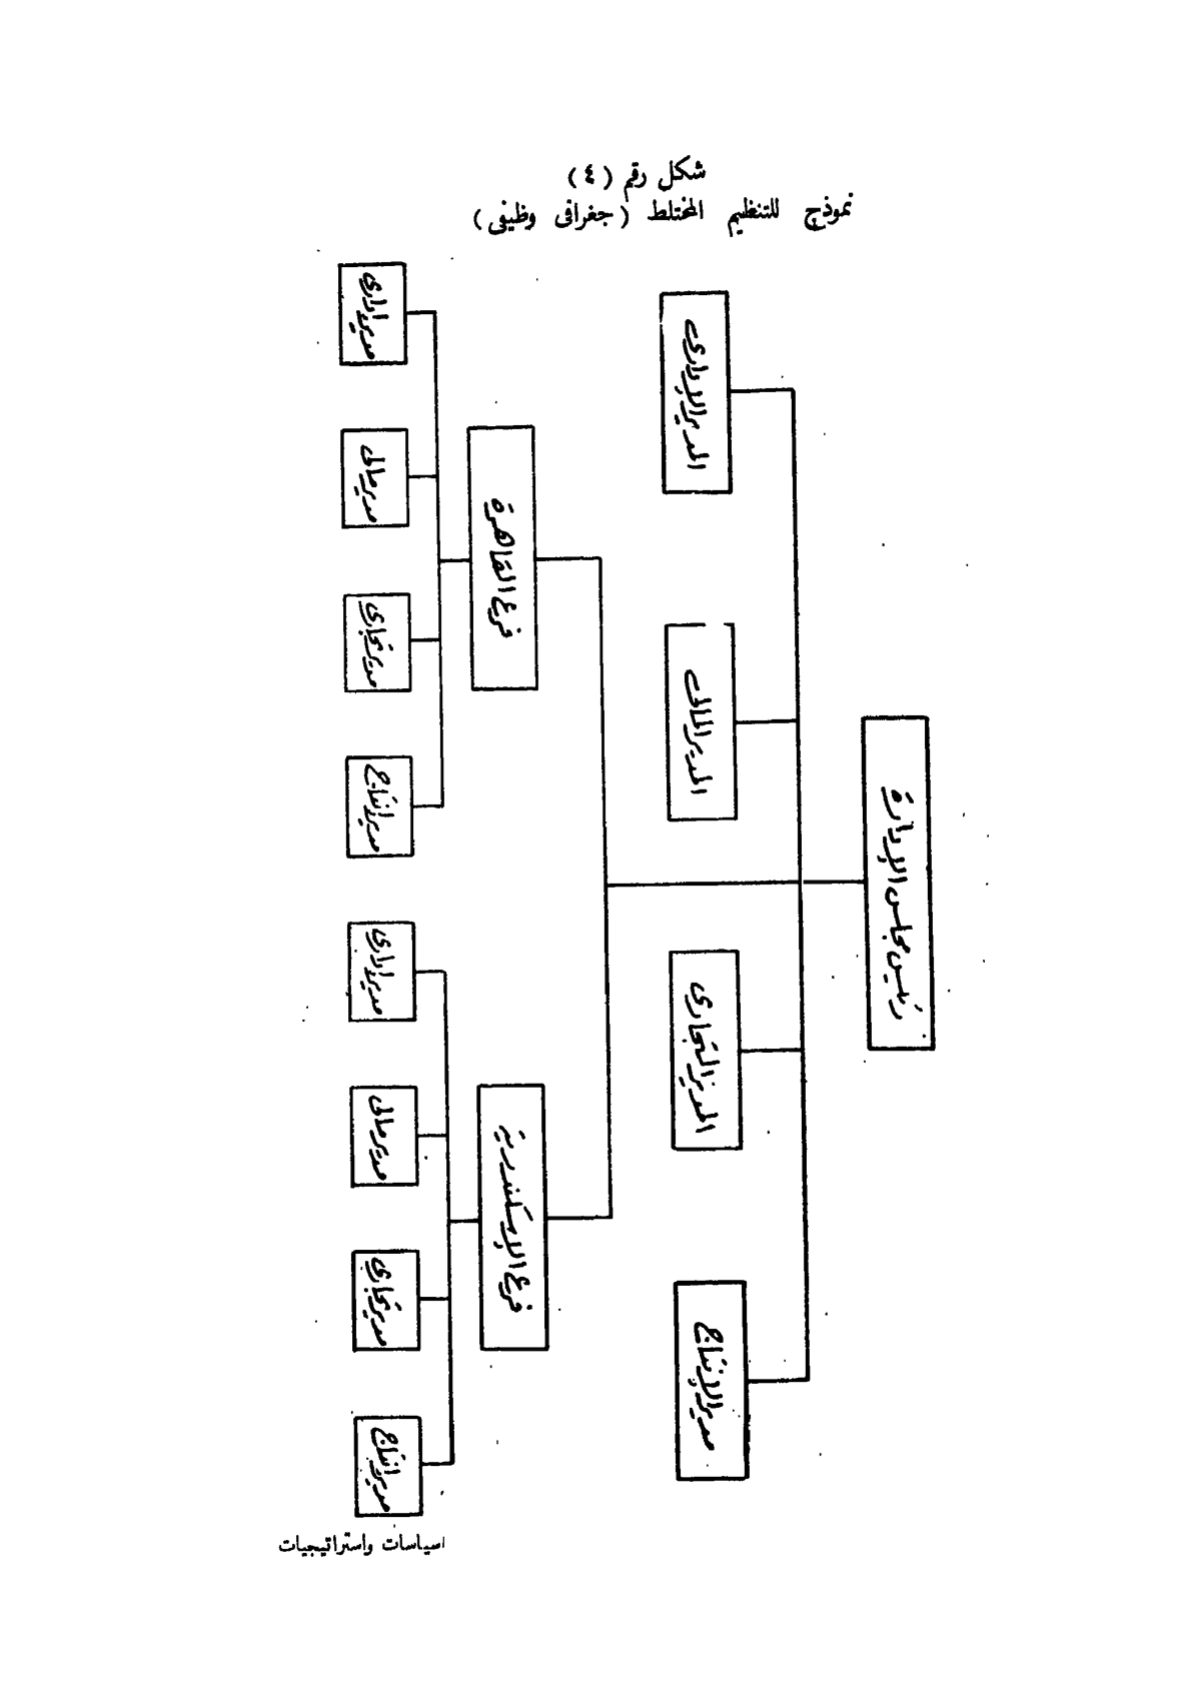 شكل رقم (٤)
نموذج للتنظيم المختلط (جغرافى وظيفى)
رئيس مجلس الإدارة
مدير الإنتاج
المدير التجارى
المدير المالى
المدير الإدارى
فرع الإسكندرية
فرع القاهرة
مدير إنتاج
مدير تجارى
مدير مالى
مدير إدارى
مدير إنتاج
مدير تجارى
مدير مالى
مدير إدارى
اسياسات واستراتيجيات